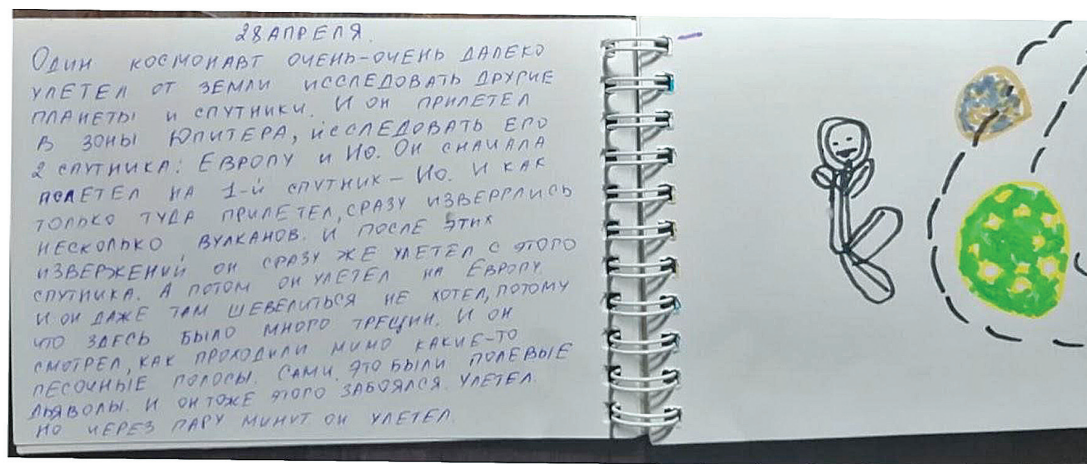 28 АПРЕЛЯ.
ОДИН КОСМОНАВТ ОЧЕНЬ-ОЧЕНЬ ДАЛЕКО
УЛЕТЕЛ ОТ ЗЕМЛИ ИССЛЕДОВАТЬ ДРУГИЕ
ПЛАНЕТЫ И СПУТНИКИ. И ОН ПРИЛЕТЕЛ
В ЗОНЫ ЮПИТЕРА, ИССЛЕДОВАТЬ ЕГО
2 СПУТНИКА: ЕВРОПУ И ИО. ОН СНАЧАЛА
ПОЛЕТЕЛ НА 1-Й СПУТНИК – ИО. И КАК
ТОЛЬКО ТУДА ПРИЛЕТЕЛ, СРАЗУ ИЗВЕРГЛИСЬ
НЕСКОЛЬКО ВУЛКАНОВ. И ПОСЛЕ ЭТИХ
ИЗВЕРЖЕНИЙ ОН СРАЗУ ЖЕ УЛЕТЕЛ С ЭТОГО
СПУТНИКА. А ПОТОМ ОН УЛЕТЕЛ НА ЕВРОПУ.
И ОН ДАЖЕ ТАМ ШЕВЕЛИТЬСЯ НЕ ХОТЕЛ, ПОТОМУ
ЧТО ЗДЕСЬ БЫЛО МНОГО ТРЕЩИН. И ОН
СМОТРЕЛ, КАК ПРОХОДИЛИ МИМО КАКИЕ-ТО
ПЕСОЧНЫЕ ПОЛОСЫ. САМИ ЭТО БЫЛИ ПОЛЕВЫЕ
ДЬЯВОЛЫ. И ОН ТОЖЕ ЭТОГО ЗАБОЯЛСЯ. УЛЕТЕЛ.
НО ЧЕРЕЗ ПАРУ МИНУТ ОН УЛЕТЕЛ.